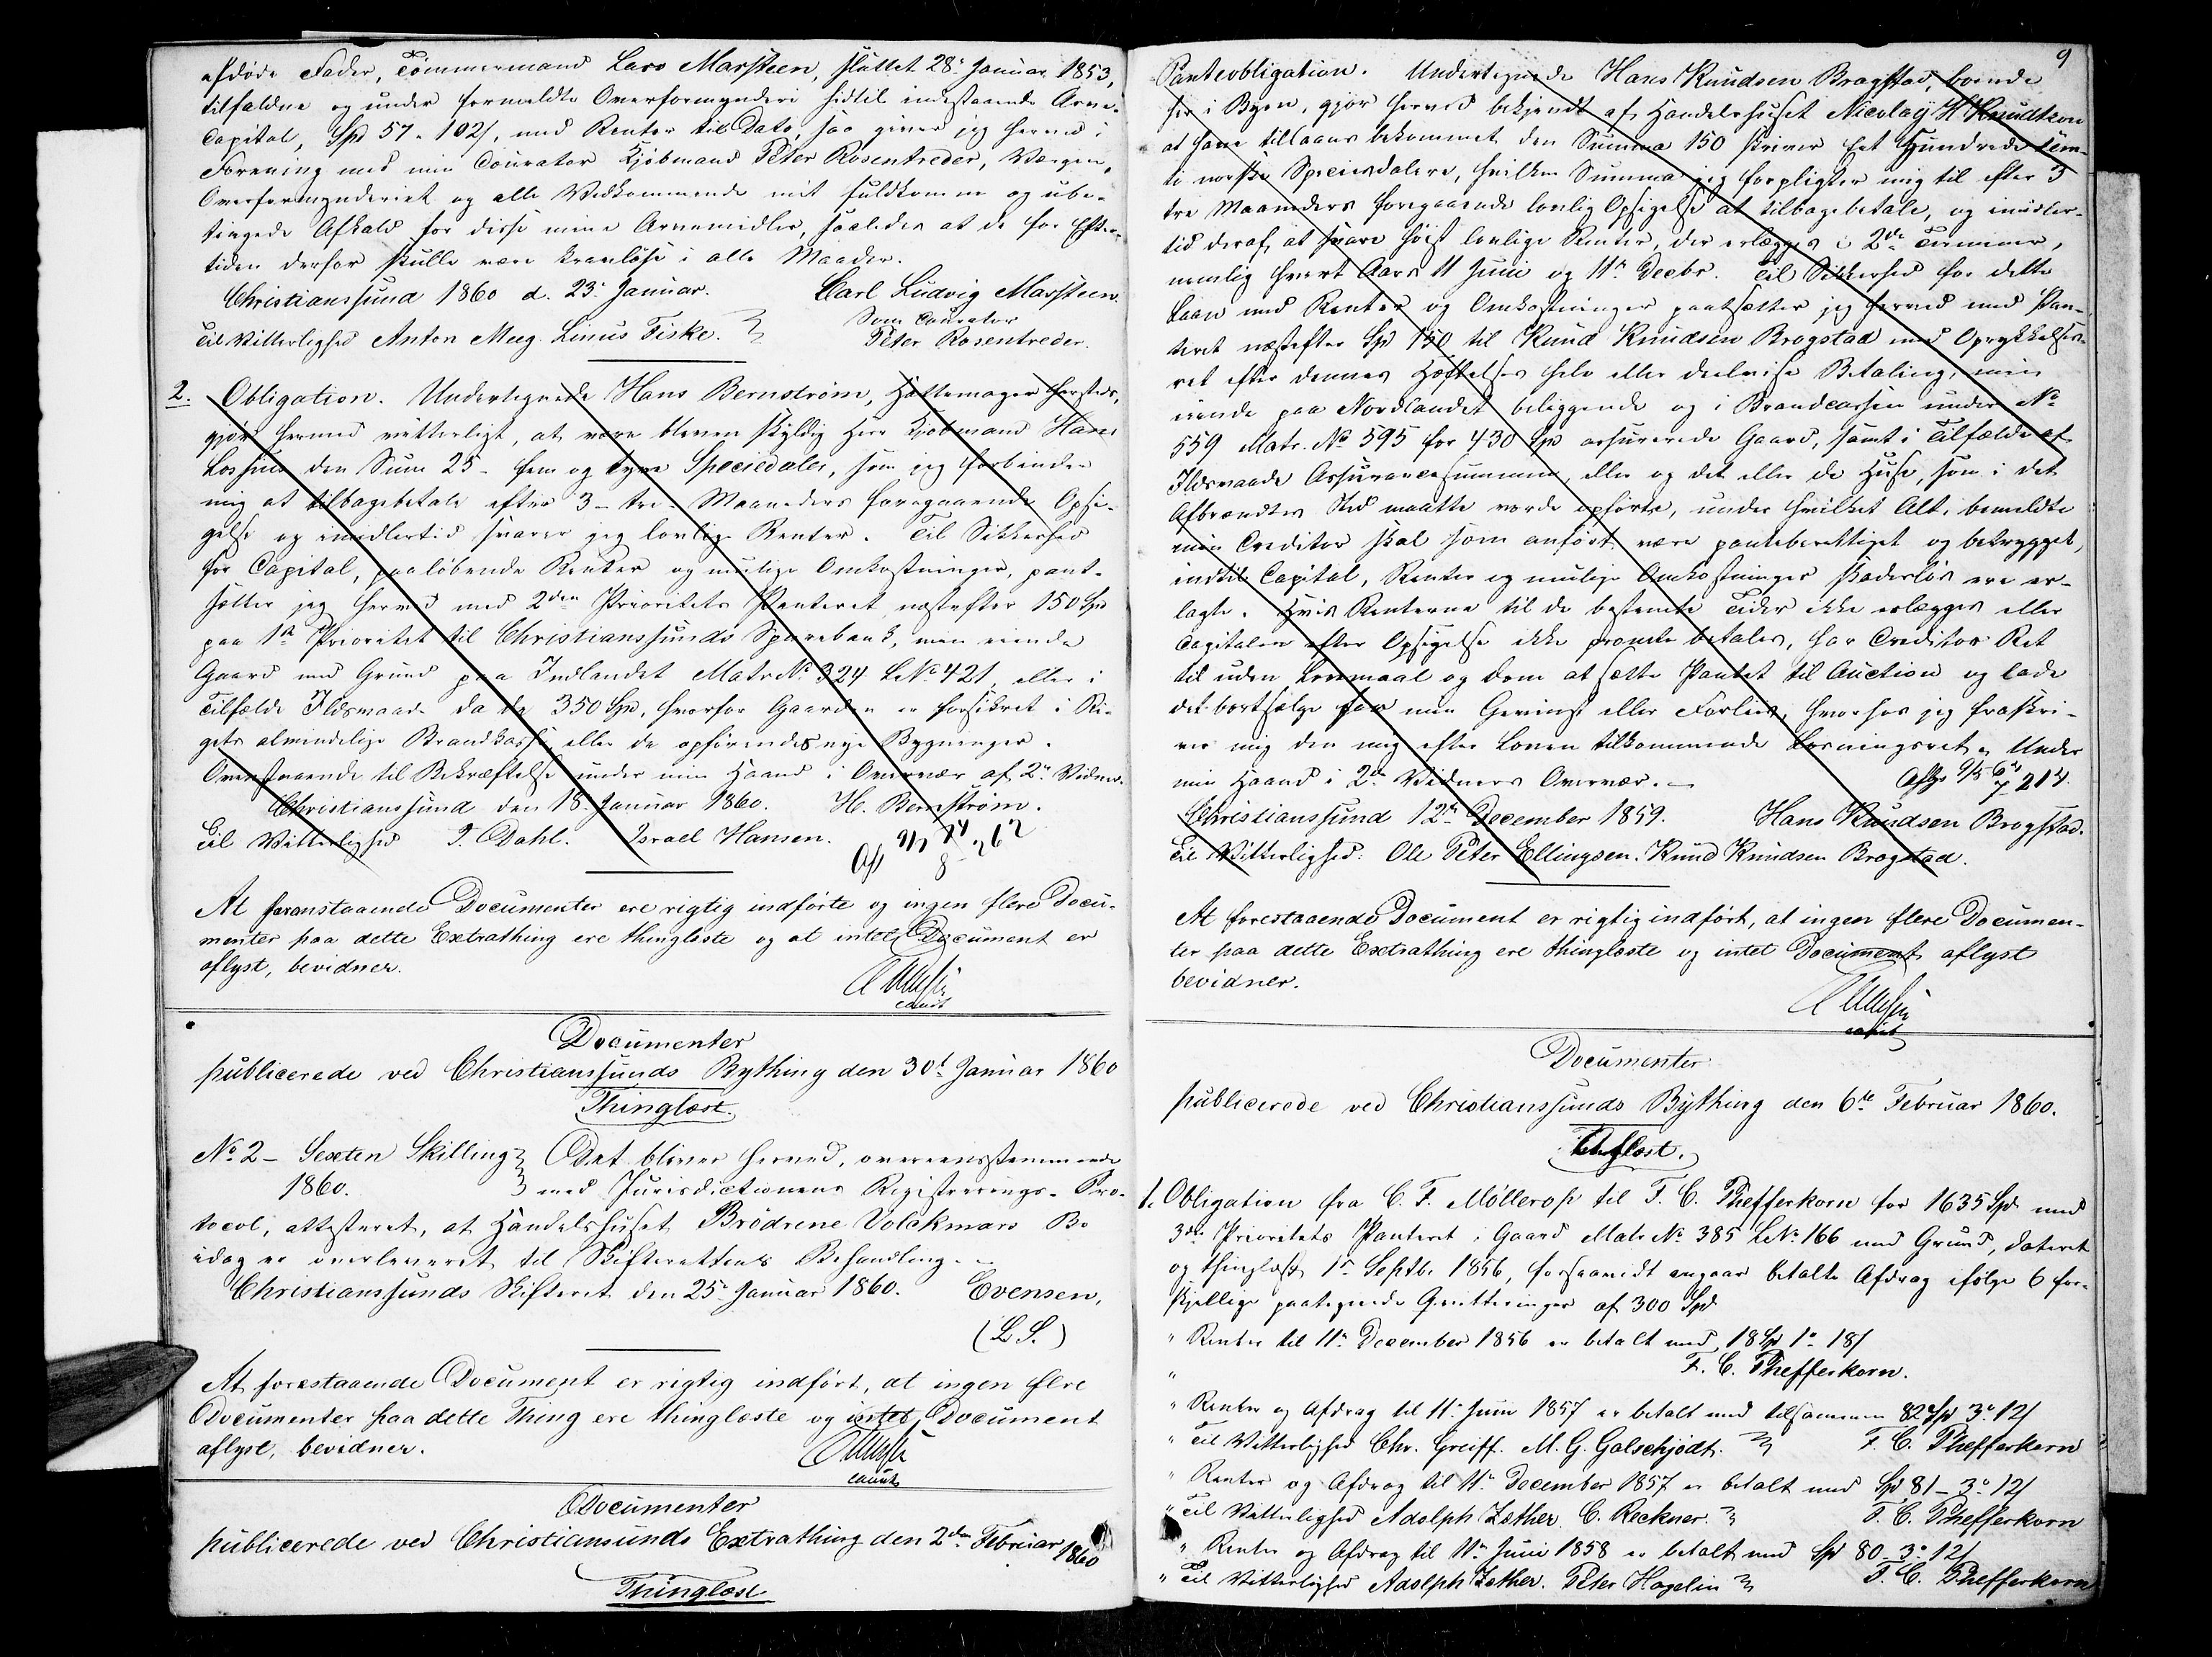 afdøde Fader, Tømmermand Lars Marsteen, sluttet 28de Januar 1853,
tilfaldne og under formeldte Overformynderi hidtil indestaaende Arve-
Capital, Spd 57 " 102 s, med Renter til Dato, saa giver jeg herved i
Forening med min Courator Kjøbmand Peter Rosentreder, Værgen,
Overformynderiet og alle Vedkommende mit fuldkomne og ube-
tingede Afkald for disse mine Arvemidler, saaledes at de for Efter-
tiden derfor skulle være kravløse i alle Maader.
Christianssund 1860 d. 23de Januar. Carl Ludvig Marsteen.
Som Courator
Til Vitterlighed Anton Meeg. Linus Fiske. Peter Rosentreder.
2. Obligation. Undertegnede Hans Bernstrøm, Hattemager hersteds,
gjør hermed vitterligt, at være bleven skyldig Herr Kjøbmand Hans
Lossius den Sum 25 - fem og tyve Speciedaler, som jeg forbinder
mig at tilbagebetale efter 3 - tre - Maaneders foregaaende Opsi-
gelse og imidlertid svarer jeg lovlige Renter. Til Sikkerhed
for Capital, paaløbende Renter og mulige Omkostninger, pant-
sætter jeg herved med 2den Prioritets Panteret næstefter 150 Spd
paa 1ste Prioritet til Christianssunds Sparebank, min eiende
Gaard med Grund paa Indlandet Matr No 324 L No 421, eller i
Tilfælde Ildsvaade da de 350 Spd, hvorfor Gaarden er forsikret i Ri-
gets almindelige Brandkasse, eller de opførendes nye Bygninger.
Ovenstaaende til Bekræftelse under min Haand i Overvær af 2de Vidner.
Christianssund den 18 Januar 1860. H. Bernstrøm.
Til Vitterlighed T. Dahl. Israel Hansen.
At foranstaaende Documenter ere rigtig indførte og ingen flere Docu-
menter paa dette Extrathing ere thinglæste og at intet Document er
aflyst, bevidner.
Documenter
publicerede ved Christianssunds Bything den 30te Januar 1860
Thinglæst.
No 2 - Sexten Skilling Det bliver herved, overeensstemmende
1860. med Jurisdictionens Registrerings-Pro-
tocol, attesteret, at Handelshuset Brødrene Volckmars Bo
idag er overleveret til Skifterettens Behandling.
Christianssunds Skifteret den 25de Januar 1860. Evensen,
(L.S.)
At forestaaende Document er rigtig indført, at ingen flere
Documenter paa dette Thing ere thinglæste og intet Document
aflyst, bevidner.
Documenter
publicerede ved Christiansunds Extrathing den 2den Februar 1860
Thinglæst
9
Panteobligation. Undertegnede Hans Knudsen Brogstad, boende
her i Byen, gjør herved bekjendt af Handelshuset Nicolay H. Knudtzon
at have tillaans bekommet den Summa 150 skriver Et Hundrede fem-
ti norske Speciesdalere, hvilken Summa jeg forpligter mig til efter 3
tre Maaneders foregaaende lovlig Opsigelse at tilbagebetale, og imidler-
tid deraf at svare høist lovlige Renter, der erlægges i 2de Terminer,
nemlig hvert Aars 11 Juni og 11te Decbr. Til Sikkerhed for dette
Laan med Renter og Omkostninger pantsætter jeg herved med Pan-
teret næstefter Spd 150 til Knud Knudsen Brogstad med Oprykkelses-
ret efter dennes Hæftelses hele eller deelvise Betaling, min
eiende paa Nordlandet beliggende og i Brandcassen under No
559 Matr. No 595 for 430 Spd assurerede Gaard, samt i Tilfælde af
Ildsvaade Assurancesummen, eller og det eller de Huse, som i det
Afbrændtes Sted maatte vorde opførte, under hvilket Alt, bemeldte
min Creditor skal som anført være panteberettiget og betrygget,
indtil Capital, Renter og mulige Omkostninger skadesløs ere er-
lagte. Hvis Renterne til de bestemte Tider ikke erlægges eller
Capitalen efter Opsigelse ikke promte betales, har Creditor Ret
til uden Lovmaal og Dom at sætte Pantet til Auction og lade
det bortsælge for min Gevinst eller Forlis, hvorhos jeg fraskri-
ver mig den mig efter Loven tilkommende Løsningsret. Under
min Haand i 2de Vidners Overvær.
Christianssund 12te December 1859. Hans Knudsen Brogstad.
Til Vitterlighed: Ole Peter Ellingsen. Knud Knudsen Brogstad.
At forestaaende Document er rigtig indført, at ingen flere Documen-
ter paa dette Extrathing ere thinglæste og intet Document aflyst
bevidner.
Documenter
publicerede ved Christianssunds Bything den 6te Februar 1860.
Aflæst.
1. Obligation fra C. F. Møllerop til F. C. Phefferkorn for 1635 Spd med
3die Prioritets Panteret i Gaard Matr No 385 L No 166 med Grund, dateret
og thinglæst 1ste Septbr 1856, forsaavidt angaar betalte Afdrag ifølge 6 for-
skjellige paategnede Qvitteringer af 300 Spd
" Renter til 11te December 1856 er betalt med 18 Spd 1 " 18 s
" F. C. Phefferkorn.
" Renter og Afdrag til 11te Juni 1857 er betalt med tilsammen 82 Spd 3 " 12 s
" Til Vitterlighed Chr. Greiff. M. G. Galschjødt. F. C. Phefferkorn
" Renter og Afdrag til 11te December 1857 er betalt med Spd 81 - 3 " 12 s
" Til Vitterlighed Adolph Zether. C. Reckner. F. C. Phefferkorn
" Renter og Afdrag til 11te Juni 1858 er betalt med Spd 80 - 3 " 12 s
" Til Vitterlighed Adolph Zether. Peter Hagelin F. C. Phefferkorn